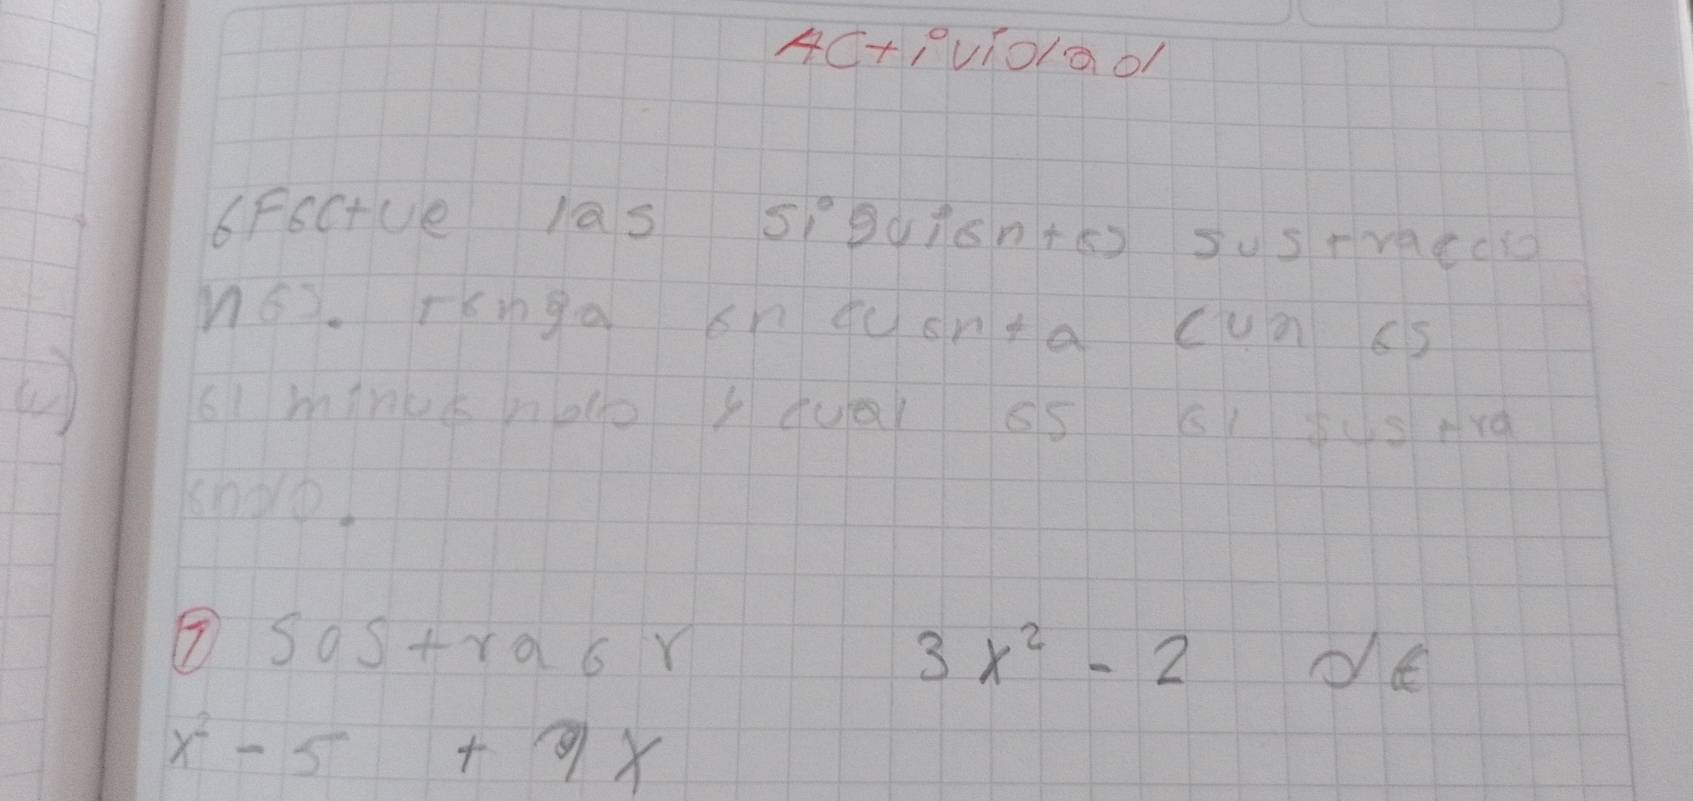 Actividad
efectue las siguientes sustraccio
nes. tenga en cuenta cuan es
el minuendo y cual es el sustra
endo.
① Sostraer 3x² - 2 de
x² - 5 + 9x